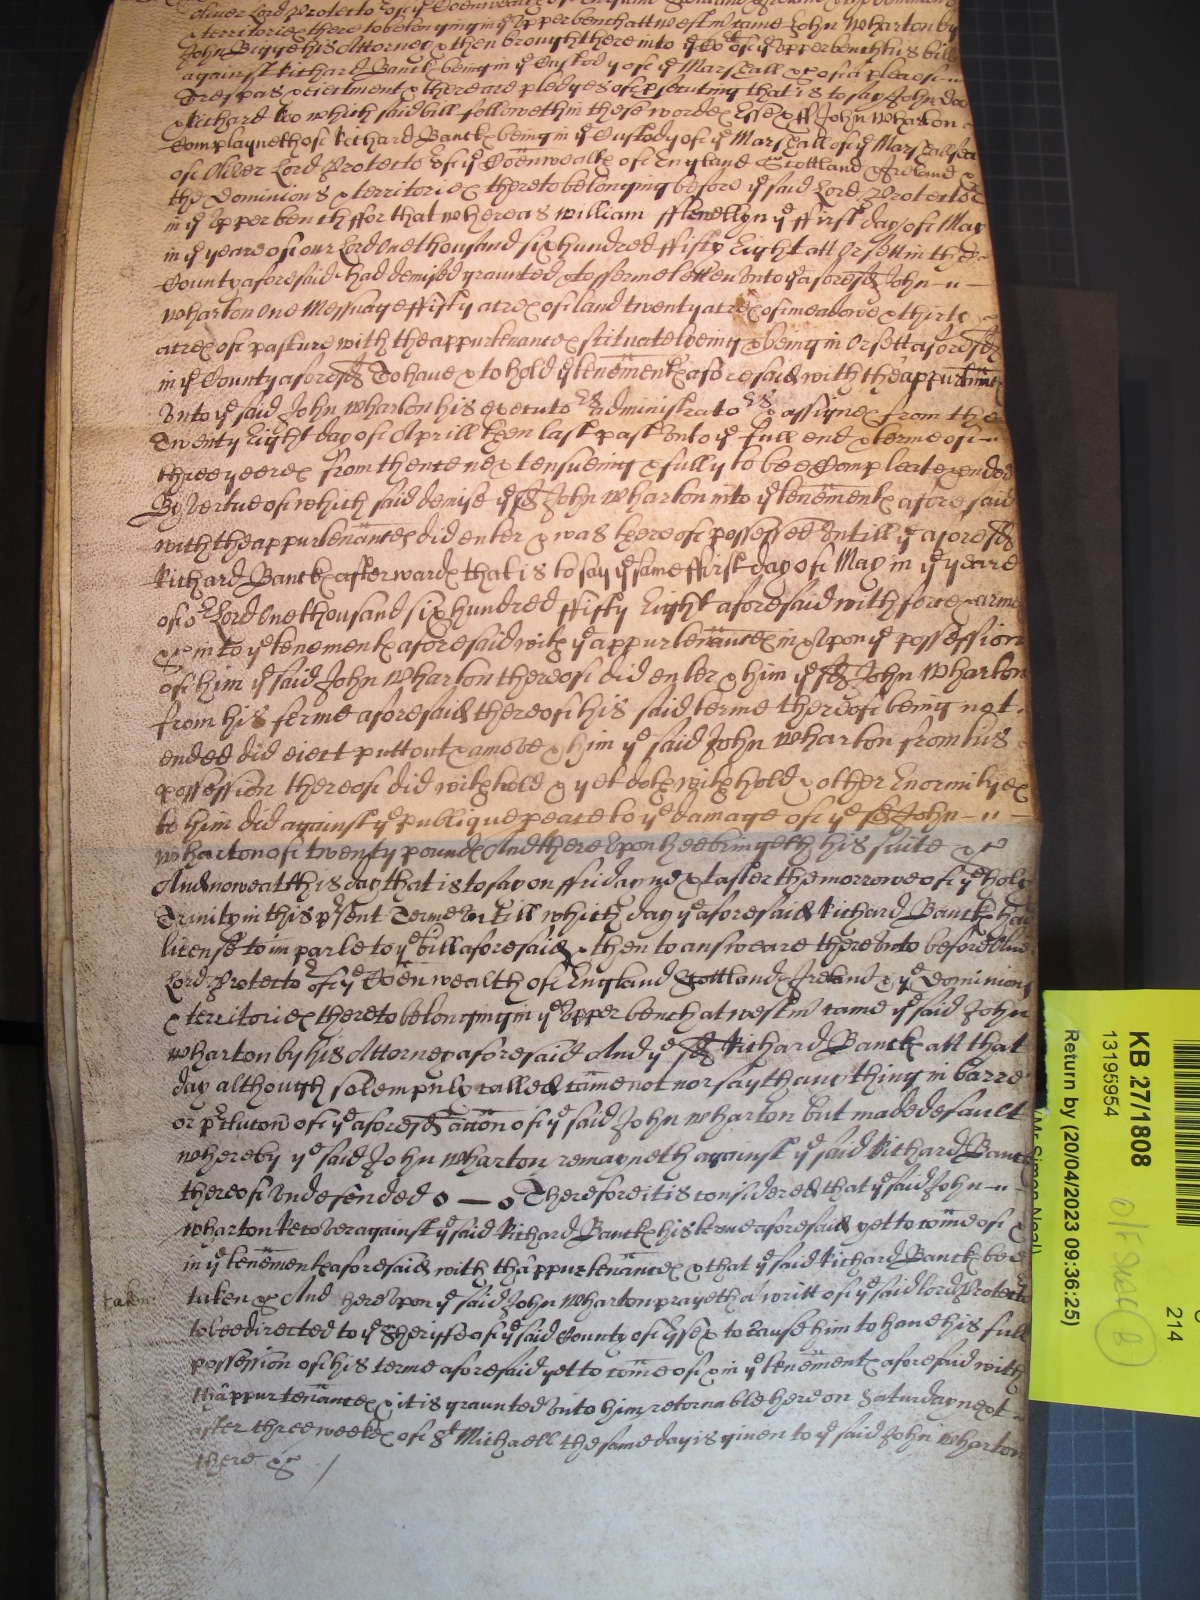 Oliver Lord Protectoʳ of yᵉ Coeñwealth of England Scotland Ireland & yᵉ Dominions
& territories there to belonging in yᵉ upper bench att westm̃ came John Wharton by
John Bigge his Attorney & then brought there into yᵉ Coʳt of yᵉ upper bench his bill
against Richard Banck being in yᵉ Custody of yᵉ Marshall &c of a plea of –
Trespas & eiectment & there are pledges of p̱secuting that is to say John doo
& Richard Roo which said bill followeth in these wordes Essex ss John Wharton
Complayneth of Richard Banck being in yᵉ Custody of yᵉ Marshall of yᵉ Marshallsea
of Oliver Lord Protectoʳ of yᵉ Coeñwealth of England Scottland Ireland &
the Dominions & territories thereto belonging before yᵉ said Lord Protectoʳ
in yᵉ upper bench ffor that whereas William fflewellyn yᵉ ffirst day of May
in yᵉ yeare of our Lord One thousand six hundred ffifty Eight att Orsett in the –
County aforesaid had demised graunted & to fferme letten unto yᵉ aforesd John – –
Wharton One Messuage ffifty acres of land twenty acres of meadowe & thirty –
acres of pasture with the appurtenances situate lyeing & being in Orsett aforesd
in yᵉ County aforesd To have & to hold yᵉ tenem̃ents aforesaid with the appurtenñces
Unto yᵉ said John Wharton his executoʳs administratoʳs & assignes from the
Twenty Eight day of Aprill then last past unto yᵉ full end & terme of –
three yeeres from thence next ensueing & fully to bee Compleate & ended
By vertue of which said demise yᵉ sd John Wharton into yᵉ tenem̃ents aforesaid
with the appurtenañces did enter & was thereof possessed Untill yᵉ aforesd
Richard Banck afterwards that is to say yᵉ same ffirst day of May in yᵉ yeare
of oʳ Lord One thousand six hundred ffifty Eight aforesaid with force & armes
&c into yᵉ tenements aforesaid with yᵉ appurtenañces in & Upon yᵉ possession
of him yᵉ said John Wharton thereof did enter & him yᵉ sd John Wharton
from his ferme aforesaid thereof his said terme thereof being not –
ended did eiect putt out & amove & him yᵉ said John Wharton from his
possession thereof did withhold & yet doth withhold & other Enormityes
to him did against yᵉ publique peace to yᵉ damage of yᵉ sd John – –
Wharton of twenty pounds And there Upon hee bringeth his suite &c
And now att this day that is to say on ffriday next after the morrowe of yᵉ holy
Trinity in this pr̃sent Terme Untill which day yᵉ aforesaid Richard Banck had
license to imparle to yᵉ bill aforesaid & then to answeare there Unto before Oliver
Lord Protectoʳ of yᵉ Coeñwealth of England Scottland & Ireland & yᵉ Dominions
& territories thereto belonging in yᵉ upper bench at westm̃ came yᵉ said John
Wharton by his Attorney aforesaid And yᵉ sd Richard Banck att that
day although solempnly called came not nor sayth any thing in barre
or p̱clusion of yᵉ aforesd acc̃on of yᵉ said John Wharton but made default
whereby yᵉ said John Wharton remayneth against yᵉ said Richard Banck
thereof Undefended o — o Therefore it is considered that yᵉ said John – –
Wharton Recover against yᵉ said Richard Banck his terme aforesaid yet to com̃e of &
in yᵉ tenem̃ents aforesaid with th'appurtenañces & that yᵉ said Richard Banck bee
taken &c And here Upon yᵉ said John Wharton prayeth a writt of yᵉ said Lord Protectoʳ
to bee directed to yᵉ Sheriffe of yᵉ said County of Essex to Cause him to have his full
possession of his terme aforesaid yet to com̃e of & in yᵉ tenem̃ents aforesaid with
th'appurtenañces & it is graunted Unto him returnable here on Saturday next –
after three weekes of Sᵗ Michaell the same day is given to yᵉ said John Wharton
there &c /
KB 27/1808
13195954
Return by (20/04/2023 09:36:25)
(Mr Simon Neal)
214